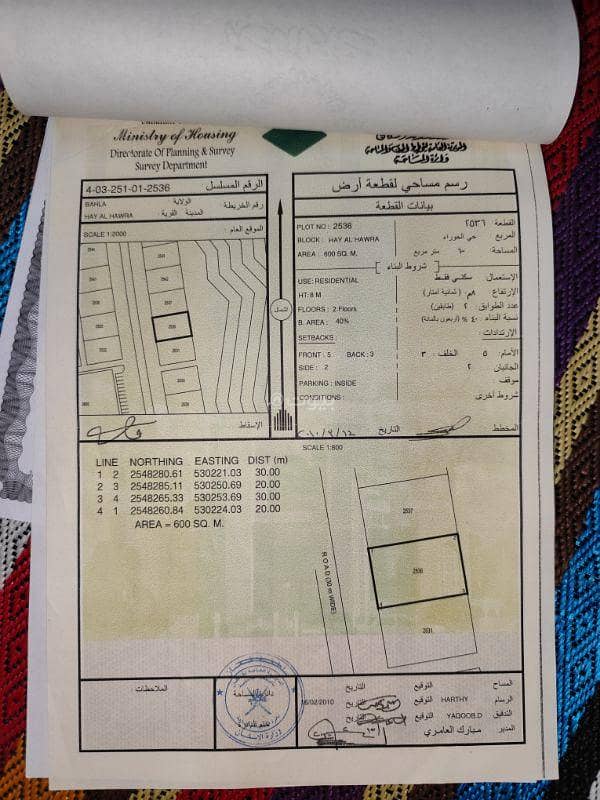 Ministry of Housing
Directorate Of Planning & Survey
Survey Department
وزارة الإسكان
4-03-251-01-2536 الرقم المسلسل
BAHLA الولاية
HAY AL HAWRA المدينة القرية : رقم الخريطة
SCALE 1:2000 الموقع العام :
2537
2536
2531
الشمال
الإسقاط
رسم مساحي لقطعة أرض
بيانات القطعة
PLOT NO : 2536 القطعة : ٢٥٣٦
BLOCK : HAY AL HAWRA المربع حي الحوراء
AREA : 600 SQ. M. المساحة: ٦٠٠ متر مربع
شروط البناء
USE: RESIDENTIAL الاستعمال سكني فقط
HT: 8 M الارتفاع ٨م ( ثمانية أمتار)
FLOORS : 2 Floors عدد الطوابق ٢ (طابقين)
B. AREA : 40% نسبة البناء ٤٠ % (أربعون بالمائة)
SETBACKS: الارتدادات:
FRONT : 5 BACK : 3 الأمام: ٥ الخلف ٣
SIDE : 2 الجانبان ٢
PARKING : INSIDE موقف
CONDITIONS : شروط أخرى
المخطط التاريخ
SCALE 1:800
LINE NORTHING EASTING DIST (m)
1 2 2548280.61 530221.03 30.00
2 3 2548285.11 530250.69 20.00
3 4 2548265.33 530253.69 30.00
4 1 2548260.84 530224.03 20.00
AREA = 600 SQ. M.
2537
2536
2531
ROAD (30 m WIDE)
الملاحظات
المساح التوقيع التاريخ
الرسام HARTHY التوقيع التاريخ 16/02/2010
التدقيق YAQOOB.D التوقيع التاريخ
المدير مبارك العامري